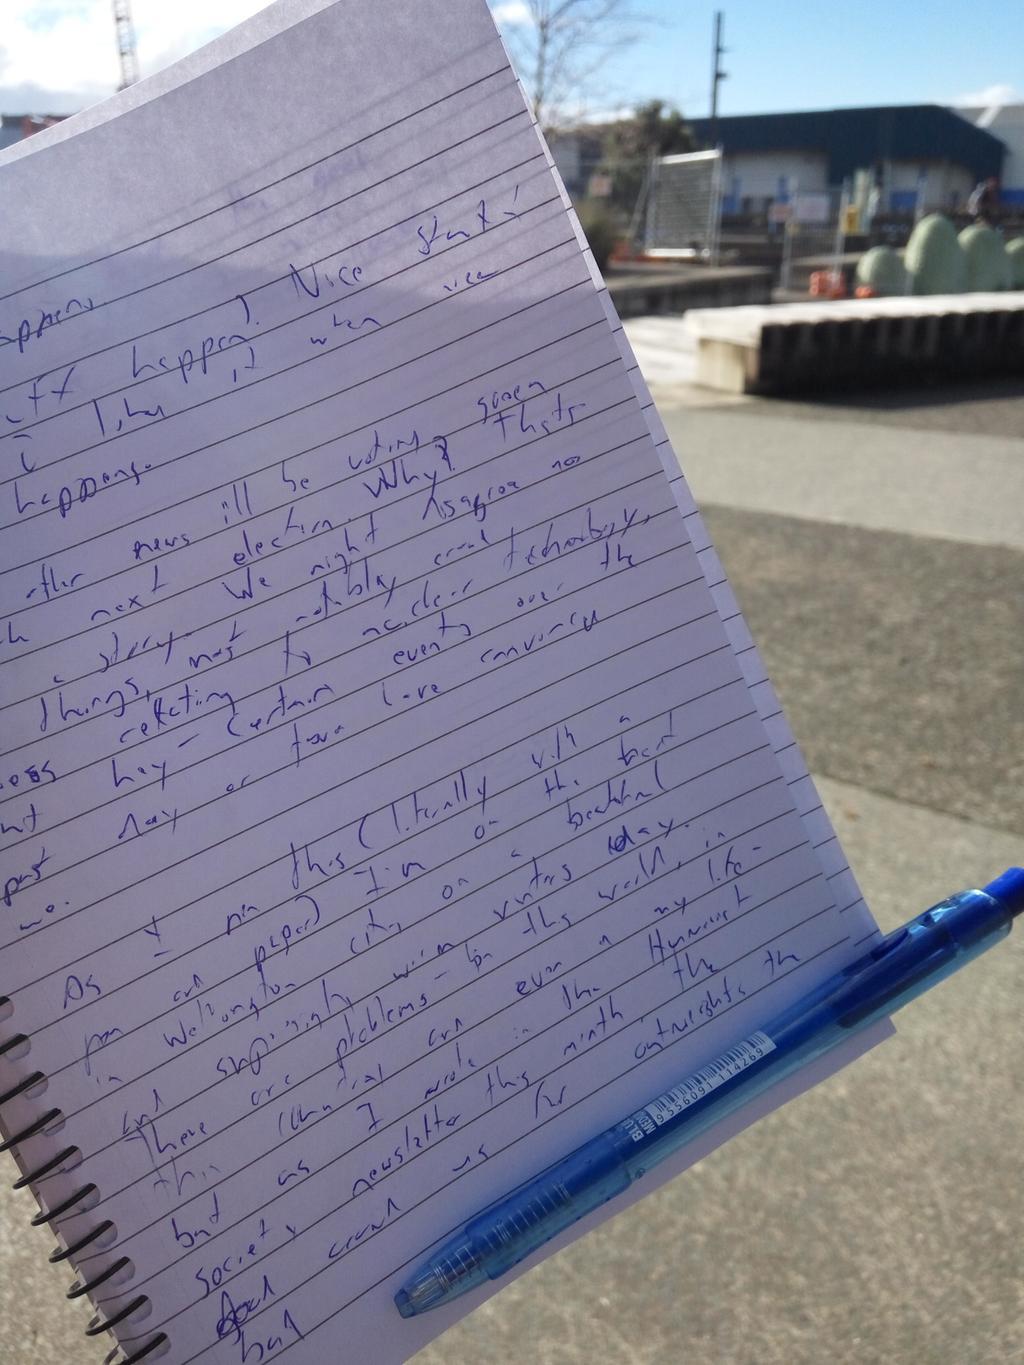 happens.
happen). Nice start!
I like it when nice
happens.
other news i'll be voting green
next election. Why? That's
a story. We might disagree on
things, most notably around
relating to nuclear technology,
hey - certain events over the
past day or two have convinced
me.
As I pen this (literally with a
pen and paper) I'm on the
in Wellington city on a beautiful
and surprisingly warm winters day.
There are problems - in this world, in
this country and even in my life -
but as I wrote in the Humanist
Society newsletter this month the
good around us far outweighs the
bad
BLU
MED
9 556091 114269